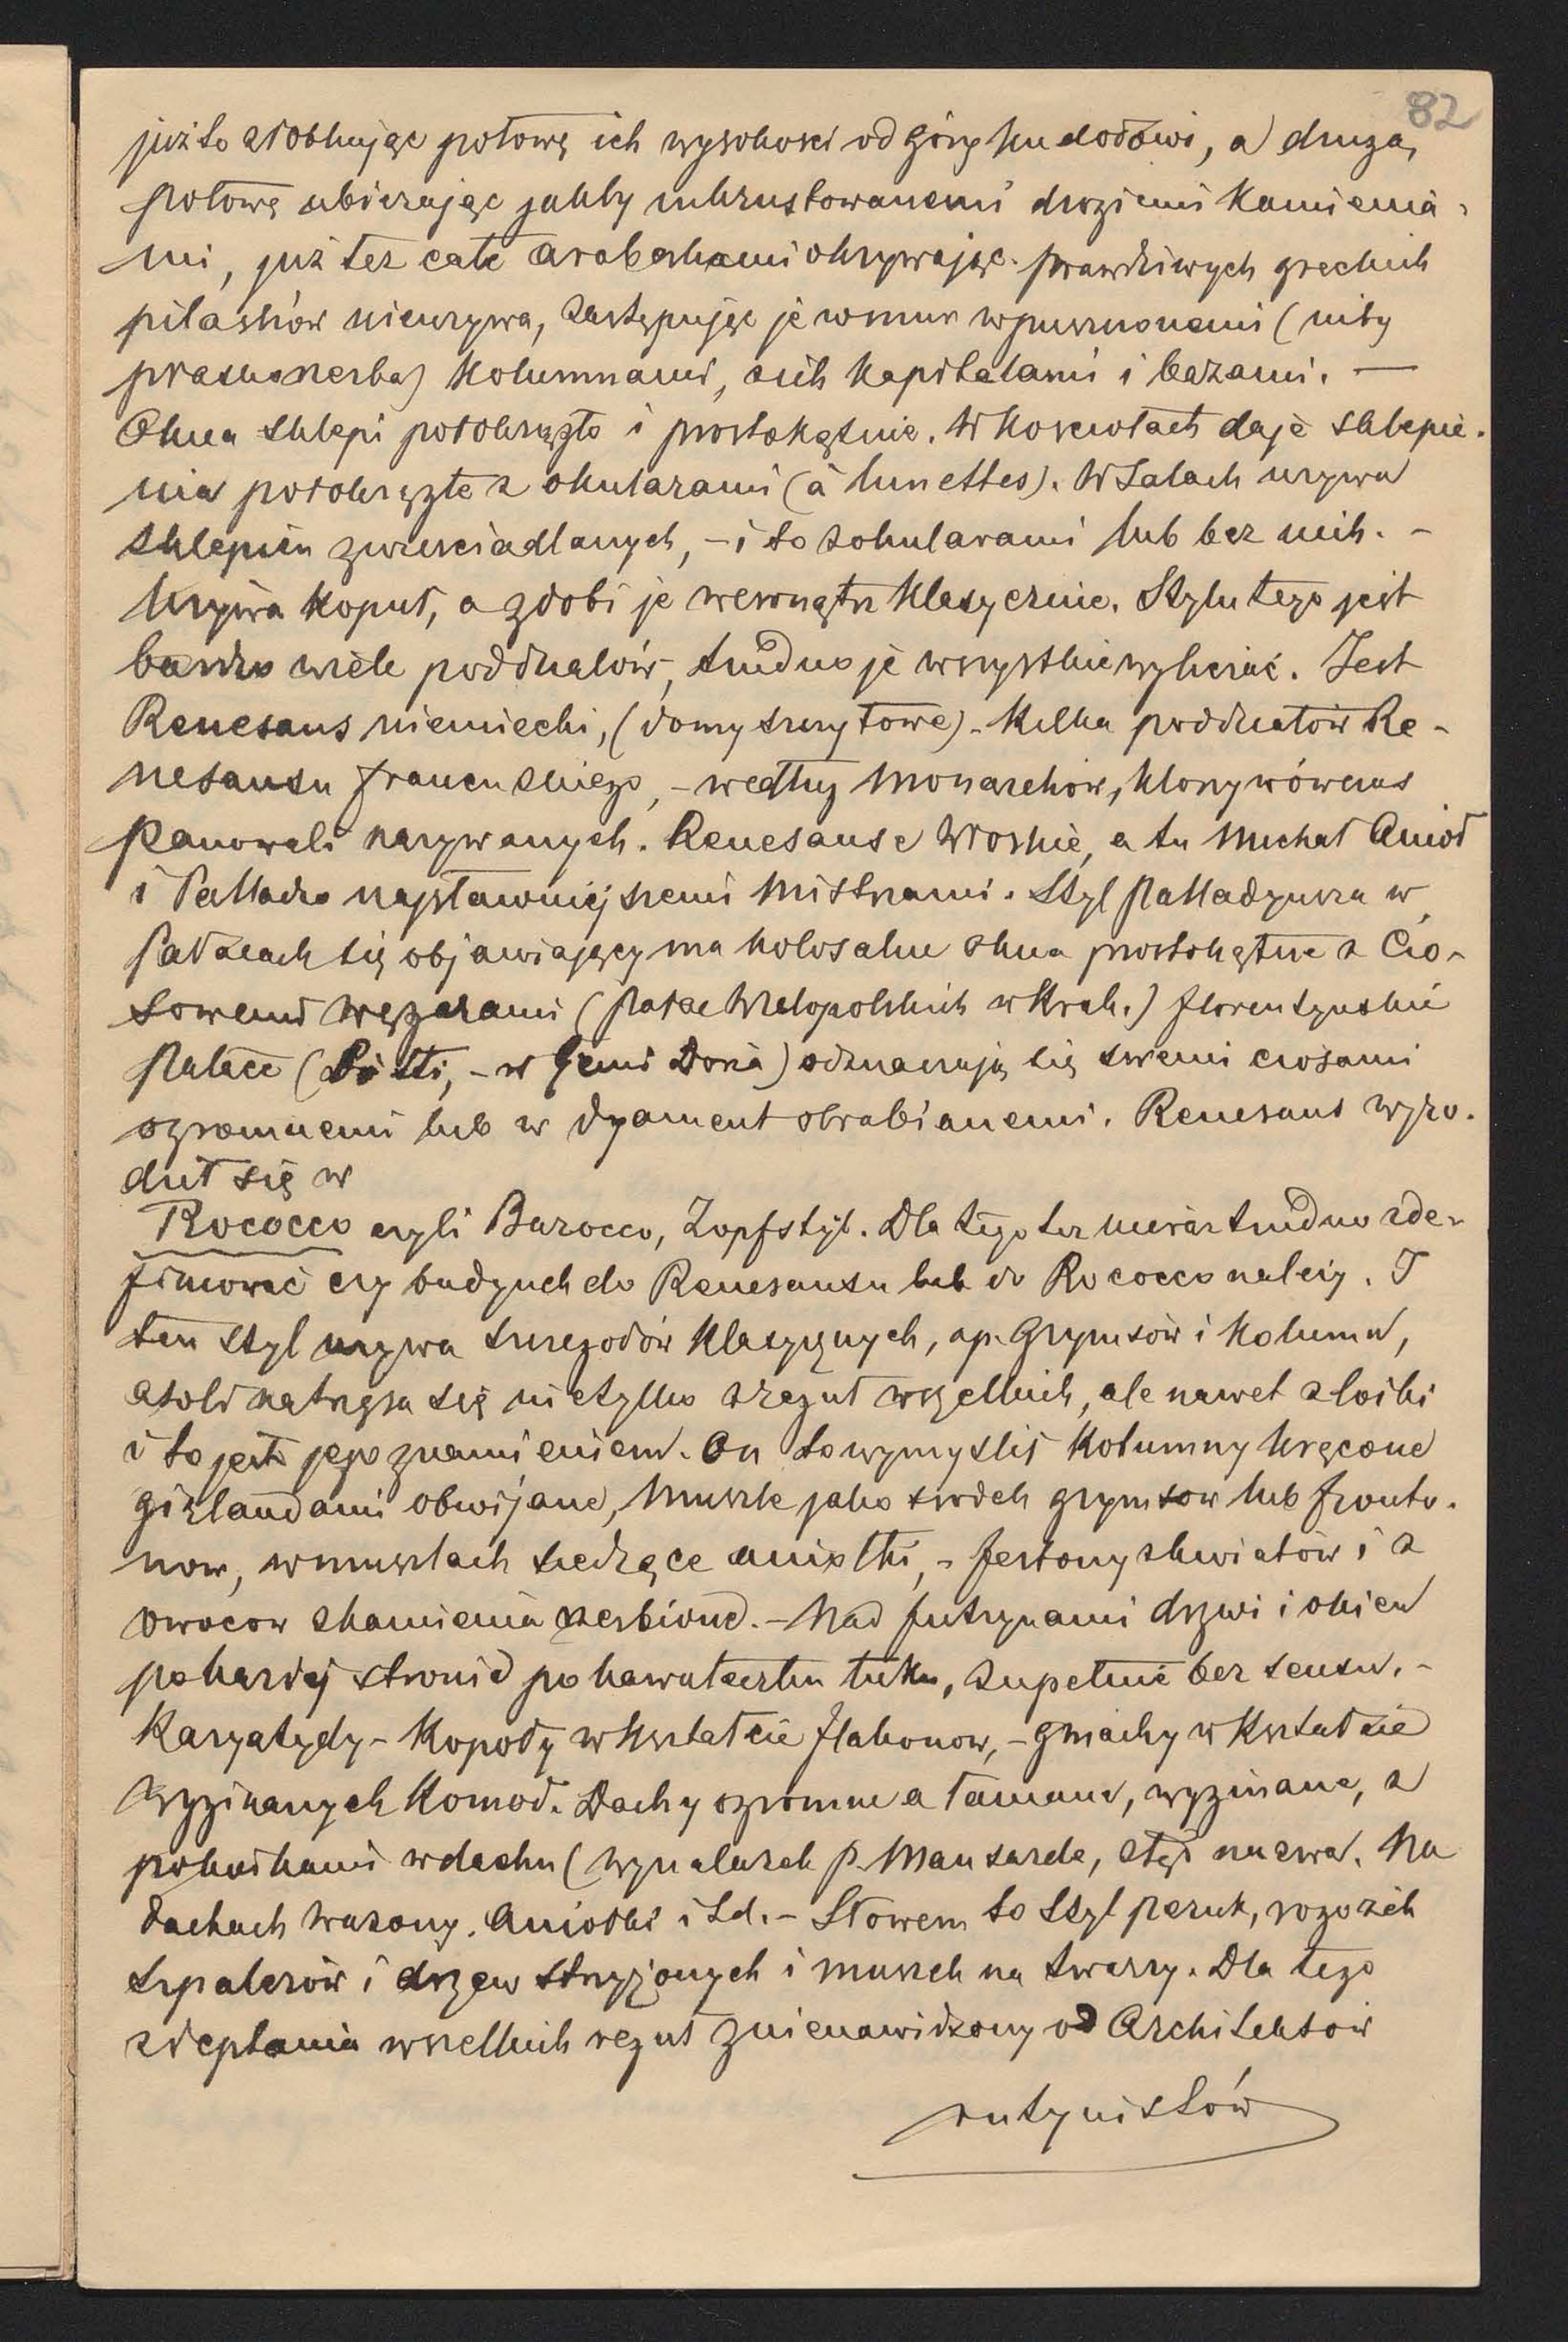 82
już to żłobkując połowę ich wysokości od góry ku dołowi, a drugą
połowę ubierając jakby inkrustowanemi drogiemi kamienia-
mi, już też całe arabeskami okrywając. prawdziwych greckich
pilastrów nieużywa, zastępując je w mur wpuszczonemi (niby
płaskorzeźba) kolumnami, z ich kapitelami i bazami. —
Okna sklepi półokrągło i prostokątnie. W kościołach daje sklepie-
nia półokrągłe z okularami (à lunettes). W Salach używa
sklepień zwierciadlanych, – i to z okularami lub bez nich. –
Używa kopuł, a zdobi je wewnątrz klasycznie. Stylu tego jest
bardzo wiele poddziałów, trudno je wszystkie wyliczać. Jest
Renesans niemiecki, (domy szczytowe). Kilka poddziałów Re-
nesansu francuskiego, – według monarchów, którzy wówczas
panowali nazywanych. Renesanse Włoskie, a tu Michał Anioł
i Palladio najsławniejszemi mistrzami. Styl Palladyusza w
Pałacach się objawiający ma kolosalne okna prostokątne z Cio-
sowemi węgarami (Pałac Wielopolskich w Krak.) florentyńskie
Pałace (Pitti, – w Genui Doria) odznaczają się swemi ciosami
ogromnemi lub w dyament obrabianemi. Renesans wyro-
dził się w
Rococco czyli Barocco, Zopfstyl. Dla tego też nieraz trudno zde-
finiować czy budynek do Renesansu lub do Rococco należy. I
ten styl używa szczegółów klasycznych, np. Grymsów i kolumn,
atoli natrząsa się nietylko z reguł wszelkich, ale nawet z logiki
i to jest jego znamieniem. On to wymyślił kolumny kręcone
girlandami obwijane, muszle jako środek grymsow lub fronto-
now, w muszlach siedzące aniołki, – festony z kwiatów i z
owocow z kamienia rzeźbione. – Nad futrynami drzwi i okien
po każdej stronie po kawałeczku łuku, zupełnie bez sensu. –
Karyatydy – Kopuły w kształcie flakonow, – gmachy w kształcie
wyginanych komod. Dachy ogromne a łamane, wyginane, z
pokoikami w dachu (wynalazek p. Mansarda, ztąd nazwa. Na
dachach wazony. Aniołki i td. – Słowem to styl peruk, rogozich
szpalerów i drzew strzyżonych i muszek na twarzy. Dla tego
zdeptania wszelkich reguł znienawidzony od Architektów
rutynistów